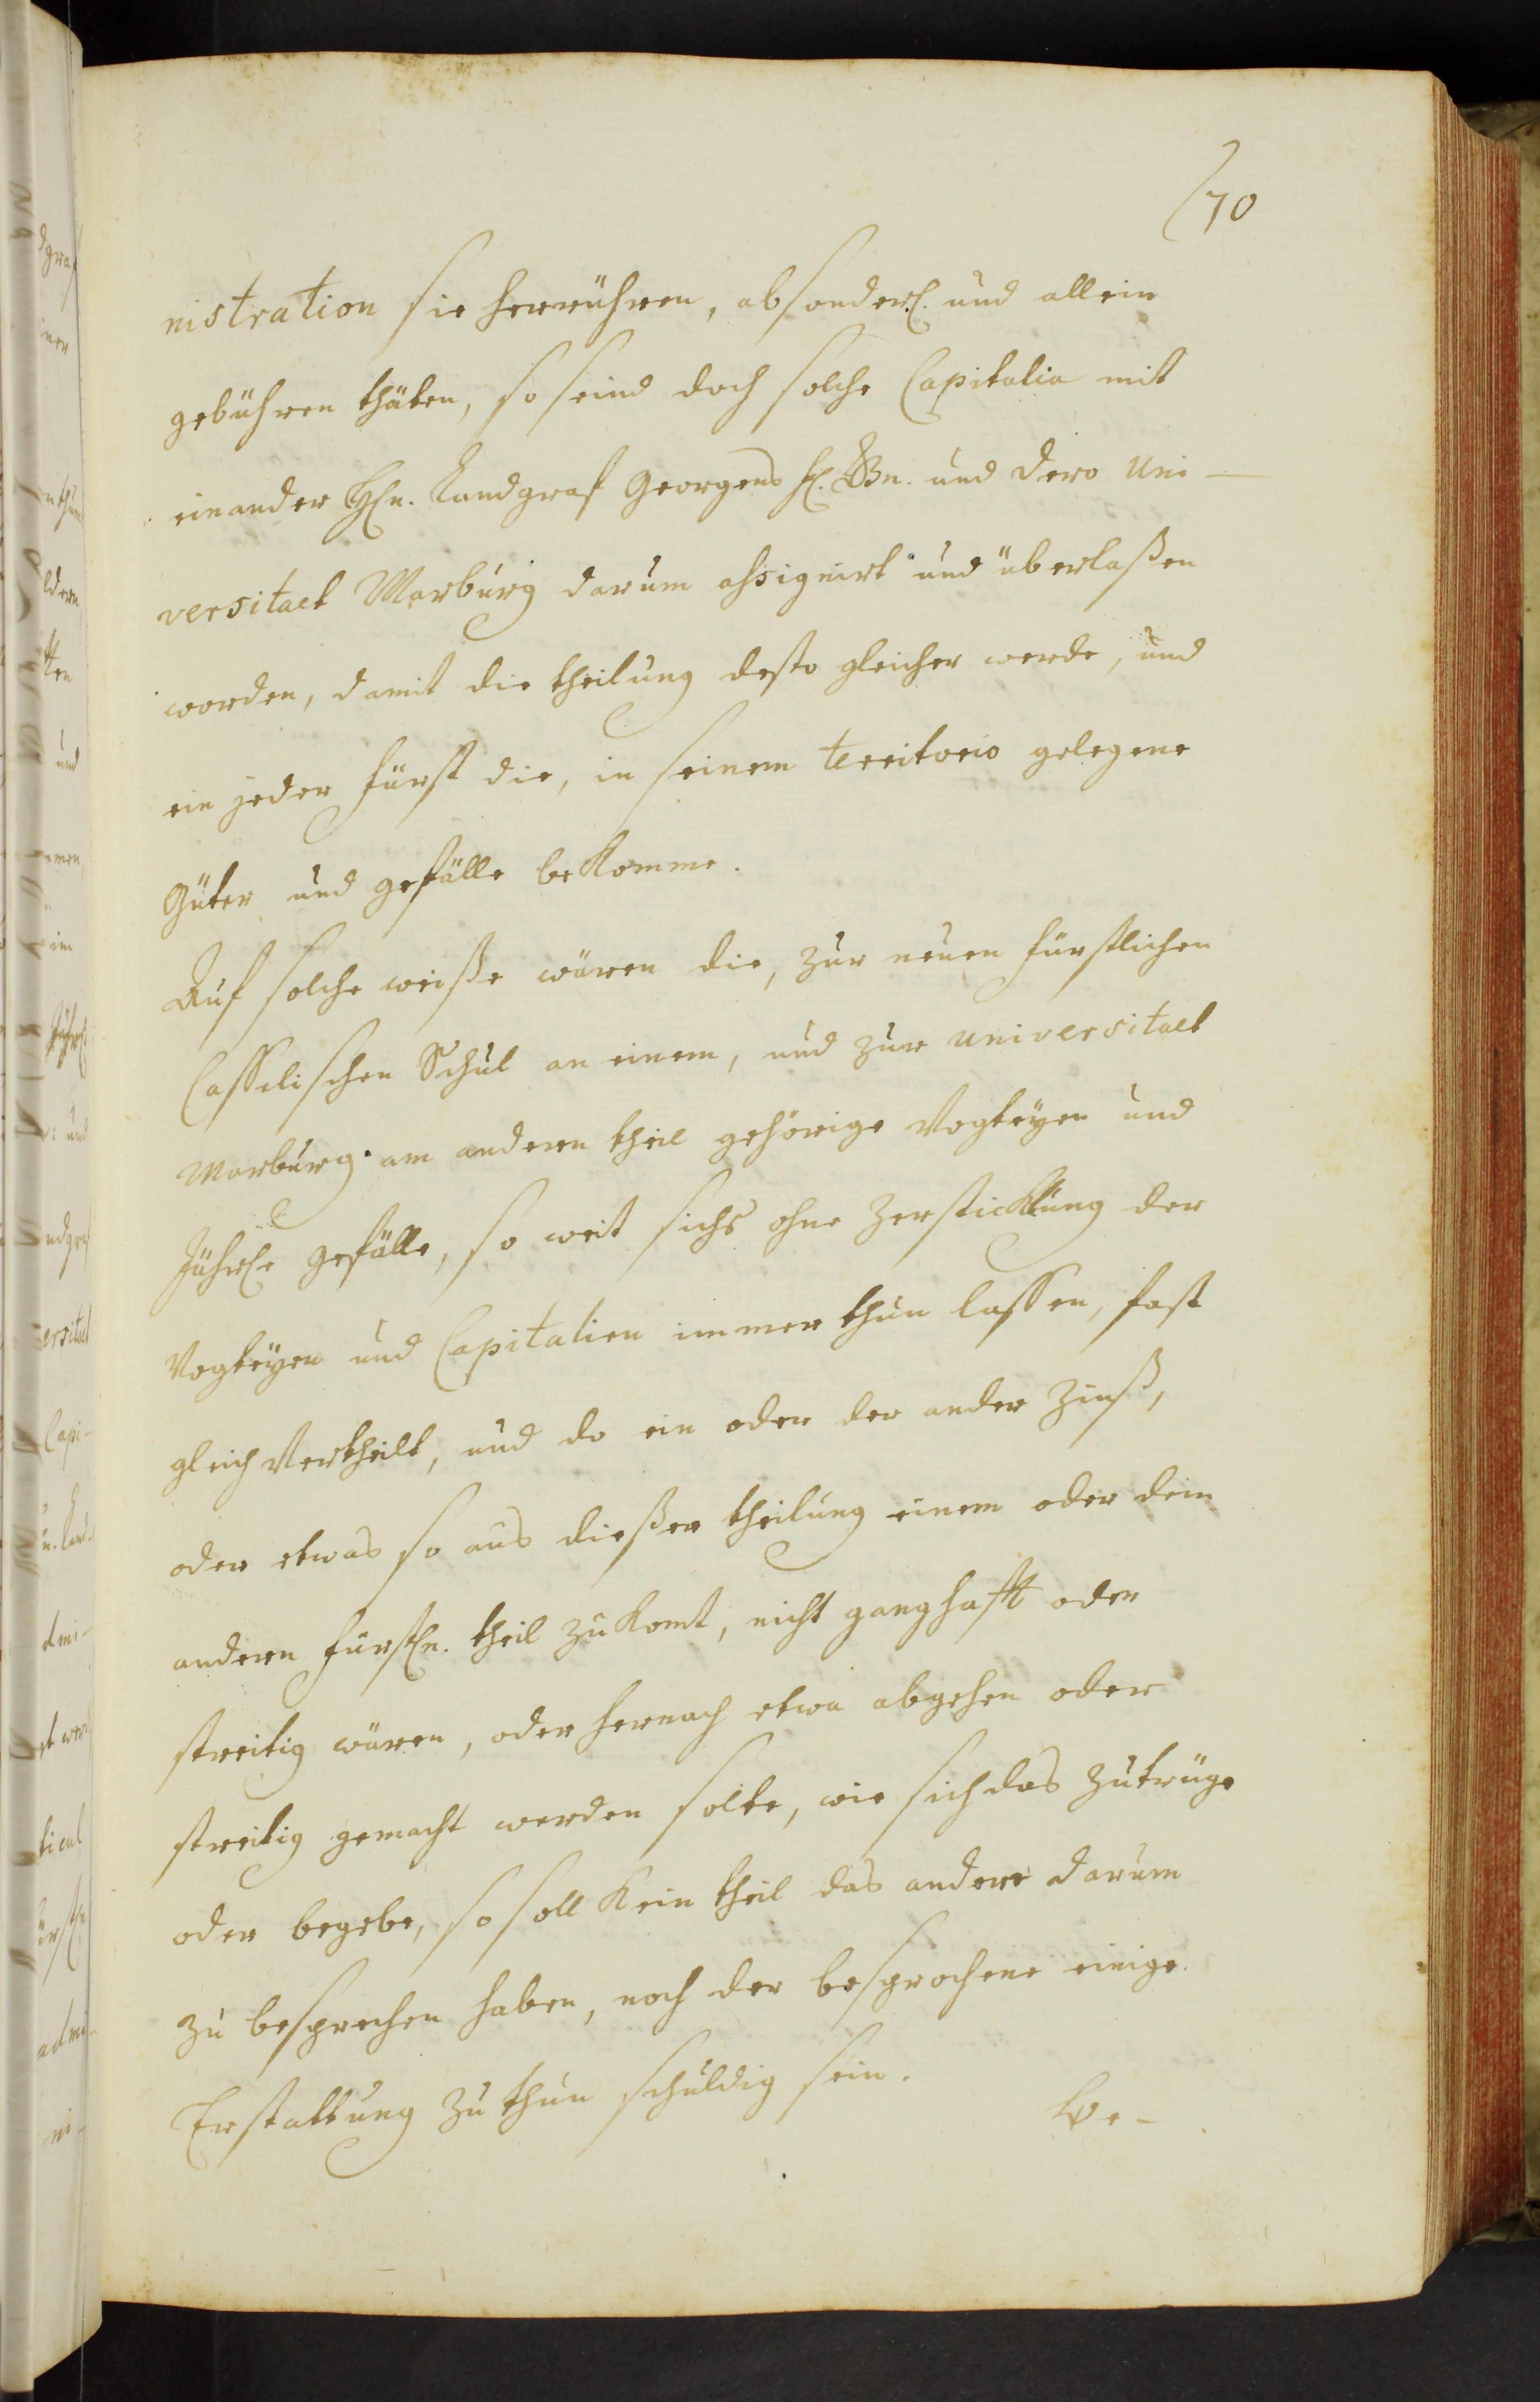 70
nistration sie herrühren, absonderl. und allein
gebühren thäten, so seind doch solche Capitalia mit
einander Hn. Landgraf Georgens fl. Gn. und dero Uni-
versitaet Marburg darum assignirt und überlaßen
worden, damit die theilung desto gleicher werde, und
ein jeder fürst die, in seinem territorio gelegene
Güter und gefälle bekomme.
Auf solche weiße wären die, zur neuen fürstlichen
Casselischen Schul an einem, und zur universitaet
Marburg am andern theil gehörige Vogteyen und
Jährl. gefälle, so weit sichs ohne zerstickung der
Vogteyen und Capitalien immer thun lassen, fast
gleich vertheilt, und do ein oder der ander Zinß,
oder etwas so aus dießer theilung einem oder dem
andern fürstln. theil zukomt, nicht ganghafft oder
streitig wären, oder hernach etwa abgehen oder
streitig gemacht werden solte, wie sich das zutrüge
oder begebe, so soll kein theil das andere darum
zu besprechen haben, noch der besprochene einige
Erstattung zu thun schuldig sein.